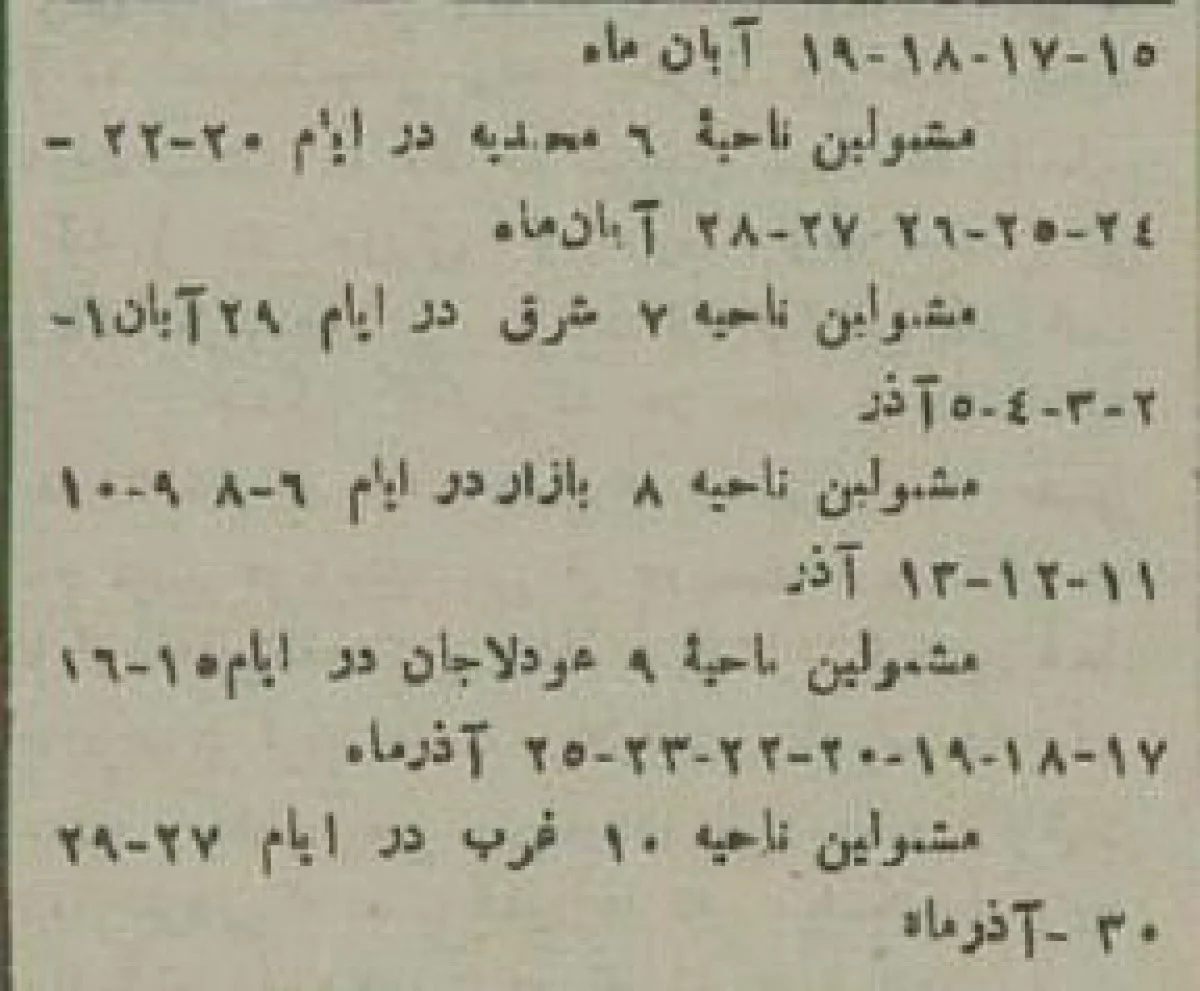 ۱۵-۱۷-۱۸-۱۹ آبان ماه
مشمولین ناحیهٔ ۶ محمدیه در ایام ۲۰-۲۲ -
۲۴-۲۵-۲۶ ۲۷-۲۸ آبان‌ماه
مشمولین ناحیه ۷ شرق در ایام ۲۹ آبان ۱-
۲-۳-۴-۵ آذر
مشمولین ناحیه ۸ بازار در ایام ۶-۸ ۹-۱۰
۱۱-۱۲-۱۳ آذر
مشمولین ناحیهٔ ۹ عودلاجان در ایام ۱۵-۱۶
۱۷-۱۸-۱۹-۲۰-۲۲-۲۳-۲۵ آذرماه
مشمولین ناحیه ۱۰ غرب در ایام ۲۷-۲۹
۳۰ -آذرماه